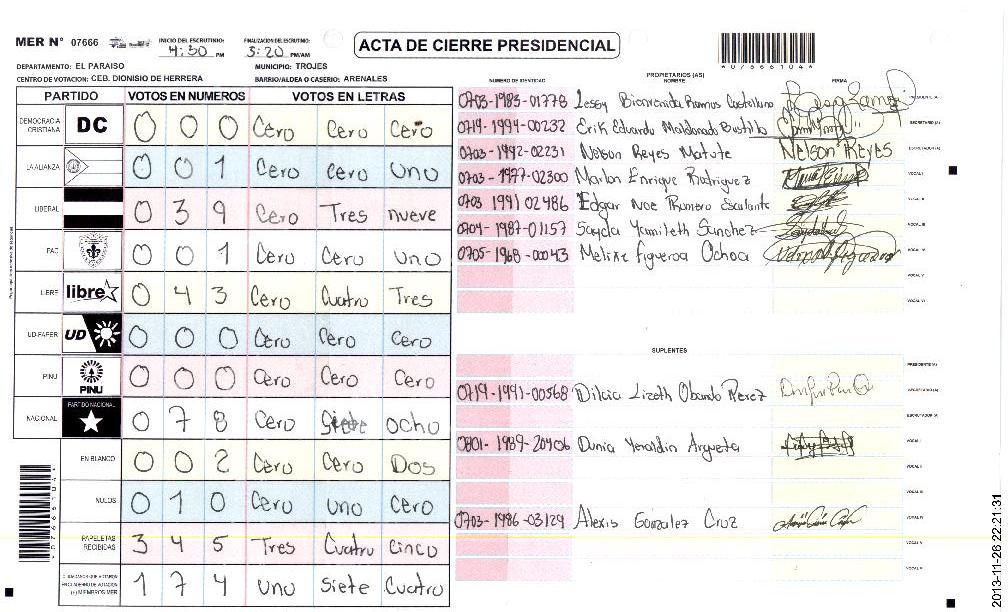 MER N° 07666 INICIO DEL ESCRUTINIO: 4:30 PM FINALIZACION DEL ESCRUTINIO: 5:20 PM/AM
ACTA DE CIERRE PRESIDENCIAL
*07666104*
DEPARTAMENTO: EL PARAISO MUNICIPIO: TROJES
CENTRO DE VOTACION: CEB. DIONISIO DE HERRERA BARRIO/ALDEA O CASERIO: ARENALES
PARTIDO VOTOS EN NUMEROS VOTOS EN LETRAS
DEMOCRACIA CRISTIANA DC 0 0 0 Cero Cero Cero
LA ALIANZA 0 0 1 Cero cero uno
LIBERAL 0 3 9 Cero Tres nueve
PAC 0 0 1 Cero Cero uno
LIBRE libre 0 4 3 Cero Cuatro Tres
UD-FAPER UD 0 0 0 Cero Cero Cero
PINU PINU 0 0 0 Cero Cero Cero
NACIONAL PARTIDO NACIONAL 0 7 8 Cero Siete ocho
EN BLANCO 0 0 2 Cero Cero Dos
NULOS 0 1 0 Cero uno Cero
PAPELETAS RECIBIDAS 3 4 5 Tres Cuatro Cinco
CIUDADANOS QUE VOTARON EN CUADERNO DE VOTACION (+) MIEMBROS MER 1 7 4 uno siete Cuatro
PROPIETARIOS (AS)
NUMERO DE IDENTIDAD NOMBRE FIRMA
0703-1983-01778 Lessy Bienvenida Ramos Castellano PRESIDENTE (A)
0719-1994-00232 Erik Eduardo Maldonado Bustillo SECRETARIO (A)
0703-1992-02231 Nelson Reyes Matute Nelson Reyes ESCRUTADOR (A)
0703-1977-02300 Marlon Enrique Rodriguez VOCAL I
0703 1991 02486 Edgar Noe Romero Escalante VOCAL II
0704-1987-01157 Sayda Yamileth Sanchez VOCAL III
0705-1968-00043 Melixe Figueroa Ochoa VOCAL IV
VOCAL V
VOCAL VI
SUPLENTES
PRESIDENTE (A)
0719-1991-00568 Dilcia Lizeth Obando Perez SECRETARIO (A)
ESCRUTADOR (A)
0801-1989-20406 Dunia Yeraldin Argueta VOCAL I
VOCAL II
VOCAL III
0703-1986-03129 Alexis Gonzalez Cruz VOCAL IV
VOCAL V
VOCAL VI
*07666104*
2013-11-26 22:21:31